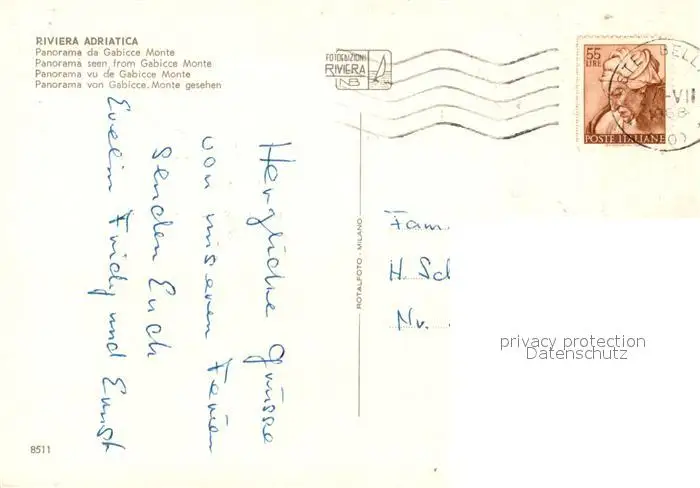 RIVIERA ADRIATICA
Panorama da Gabicce Monte
Panorama seen from Gabicce Monte
Panorama vu de Gabicce Monte
Panorama von Gabicce Monte gesehen
FOTOEDIZIONI
RIVIERA
NB
55
LIRE
POSTE ITALIANE
BELL
-VII
1968
Herzliche Grüsse
von unseren Ferien
senden Euch
Evelin Fridy und Ernst
Fam.
H. Sch
Nr.
ROTALFOTO - MILANO
privacy protection
Datenschutz
8511